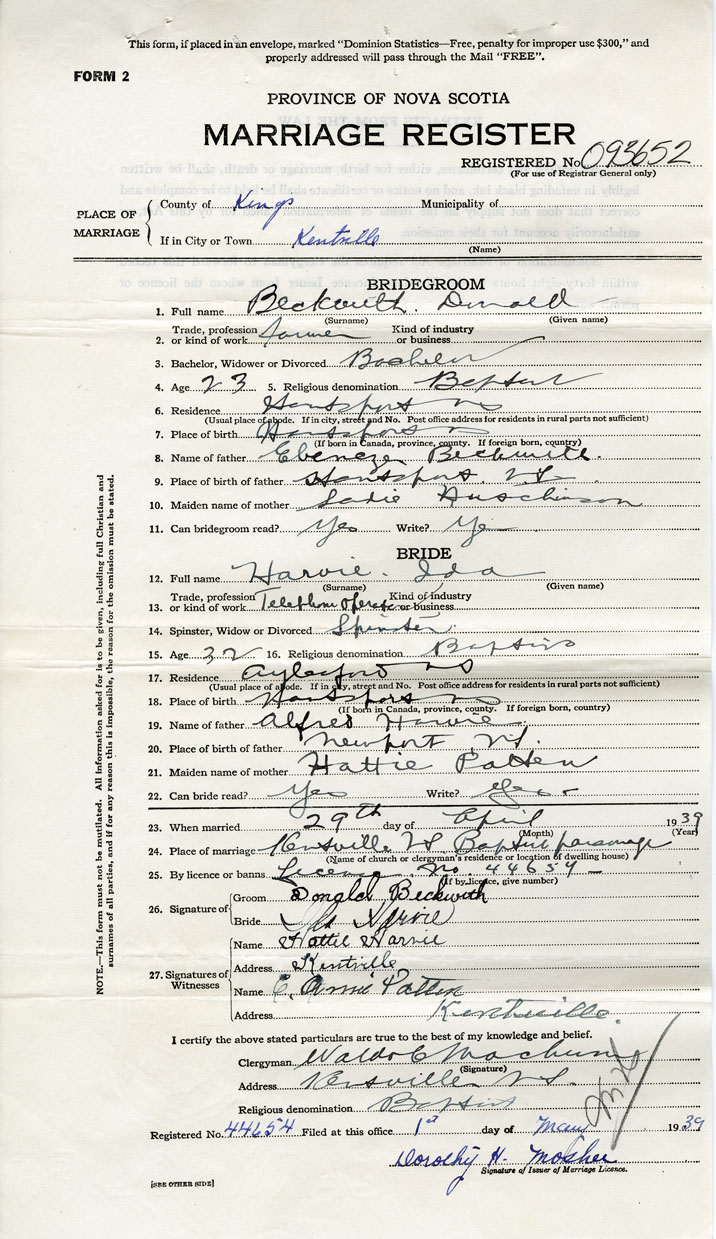 This form, if placed in an envelope, marked "Dominion Statistics—Free, penalty for improper use $300," and
properly addressed will pass through the Mail "FREE".
FORM 2
PROVINCE OF NOVA SCOTIA
MARRIAGE REGISTER
REGISTERED No. 093652
(For use of Registrar General only)
PLACE OF MARRIAGE
County of Kings Municipality of
If in City or Town Kentville
(Name)
BRIDEGROOM
1. Full name Beckwith Donald
(Surname) (Given name)
2. Trade, profession or kind of work farmer Kind of industry or business
3. Bachelor, Widower or Divorced Bachelor
4. Age 23 5. Religious denomination Baptist
6. Residence Hantsport NS
(Usual place of abode. If in city, street and No. Post office address for residents in rural parts not sufficient)
7. Place of birth Hantsport NS
(If born in Canada, province, county. If foreign born, country)
8. Name of father Ebenezer Beckwith
9. Place of birth of father Hantsport N.S.
10. Maiden name of mother Sadie Hutchinson
11. Can bridegroom read? Yes Write? Yes
BRIDE
12. Full name Harvie Ida
(Surname) (Given name)
13. Trade, profession or kind of work Telephone operator Kind of industry or business
14. Spinster, Widow or Divorced Spinster
15. Age 32 16. Religious denomination Baptist
17. Residence Aylesford NS
(Usual place of abode. If in city, street and No. Post office address for residents in rural parts not sufficient)
18. Place of birth Hantsport NS
(If born in Canada, province, county. If foreign born, country)
19. Name of father Alfred Harvie
20. Place of birth of father Newport N.S.
21. Maiden name of mother Hattie Patten
22. Can bride read? Yes Write? Yes
23. When married 29th day of April 1939
(Month) (Year)
24. Place of marriage Kentville N.S. Baptist parsonage
(Name of church or clergyman's residence or location of dwelling house)
25. By licence or banns Licence No. 44654
(If by licence, give number)
26. Signature of
Groom Donald Beckwith
Bride Ida Harvie
27. Signatures of Witnesses
Name Hattie Harvie
Address Kentville
Name C. Annie Patten
Address Kentville
I certify the above stated particulars are true to the best of my knowledge and belief.
Clergyman Waldo C Machum
(Signature)
Address Kentville N.S.
Religious denomination Baptist
Registered No. 44654 Filed at this office 1st day of May 1939
Dorothy H. Mosher
Signature of Issuer of Marriage Licence.
[SEE OTHER SIDE]
NOTE.—This form must not be mutilated. All information asked for is to be given, including full Christian and
surnames of all parties, and if for any reason this is impossible, the reason for the omission must be stated.